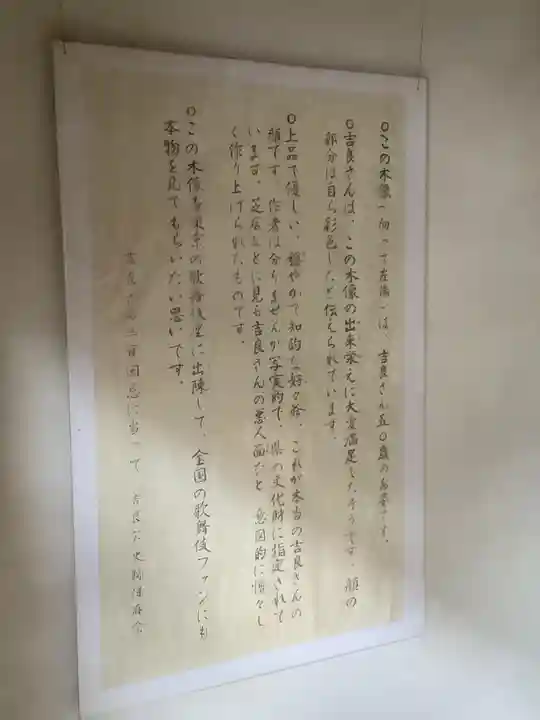 ○この木像(向って左端)は、吉良さん五〇歳のお姿です。
○吉良さんは、この木像の出来栄えに大変満足したそうです。顔の
部分は自ら彩色したと伝えられています。
○上品で優しい、穏やかで知的な好々爺、これが本当の吉良さんの
顔です。作者は分りませんが写実的で、県の文化財に指定されて
います。芝居などに見る吉良さんの悪人面だと 意図的に憎々し
く作り上げられたものです。
○この木像を東京の歌舞伎座に出陳して、全国の歌舞伎ファンにも
本物を見てもらいたい思いです。
吉良さん三百回忌に当って 吉良公史跡保存会